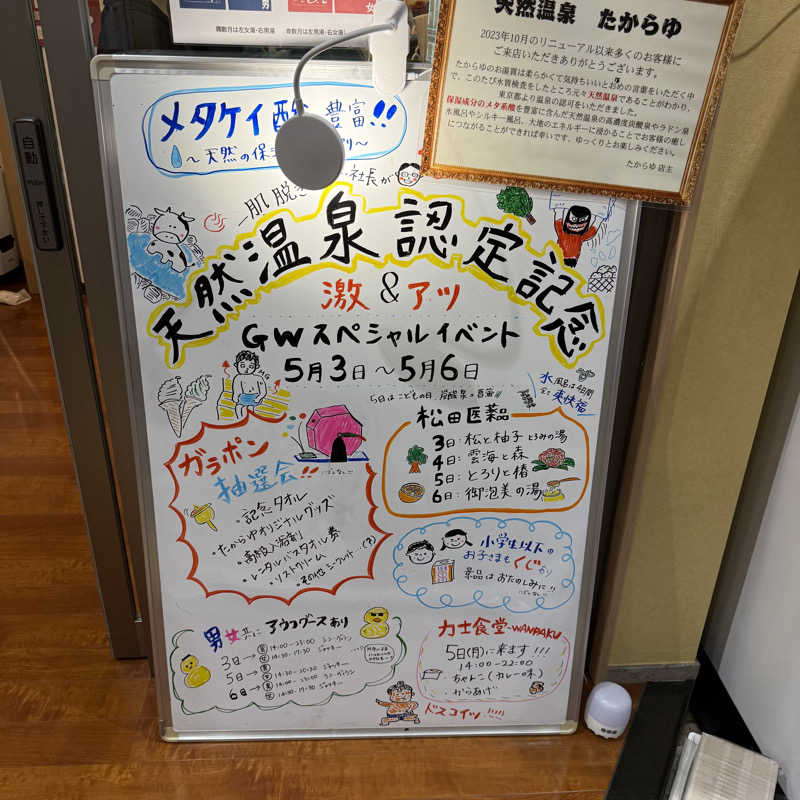 男
女
偶数月は左女湯・右男湯 奇数月は左男湯・右女湯
天然温泉 たからゆ
2023年10月のリニューアル以来多くのお客様に
ご来店いただきありがとうございます。
たからゆのお湯質は柔らかくて気持ちいいとお褒めの言葉をいただく中
で、このたび水質検査をしたところ元々天然温泉であることがわかり、
東京都より温泉の認可をいただきました。
保湿成分のメタ系酸を豊富に含んだ天然温泉の高濃度炭酸泉やラドン泉
水風呂やシルキー風呂。大地のエネルギーに浸かることでお客様の癒し
につながることができれば幸いです。ゆっくりとお楽しみください。
たからゆ 店主
自動
押して下さい
メタケイ酸 豊富!!
～天然の保
り～
一肌脱
社長が
天然温泉認定記念
激&アツ
GWスペシャルイベント
5月3日～5月6日
5日はこどもの日
水風呂は4日間
爽快福
ガラポン
抽選会!!
・記念タオル
・たからゆオリジナルグッズ
・高級入浴剤
・レンタルバスタオル券
・リストクリーム
・その他シークレット…(?)
松田医薬
3日:松と柚子とろみの湯
4日:雲海と森
5日:とろりと椿
6日:御泡美の湯
小学生以下の
お子さまもくじあり
景品はおたのしみに!!
男女共にアウフグースあり
3日→
14:00-23:00
14:30-19:30
5日→
14:30-20:30
6日→
14:00-23:00
14:30-19:30
力士食堂-WANPAKU
5日(月)に来ます!!!
14:00-22:00
ちゃんこ(カレー味)
からあげ
ドスコイッ!!!!!